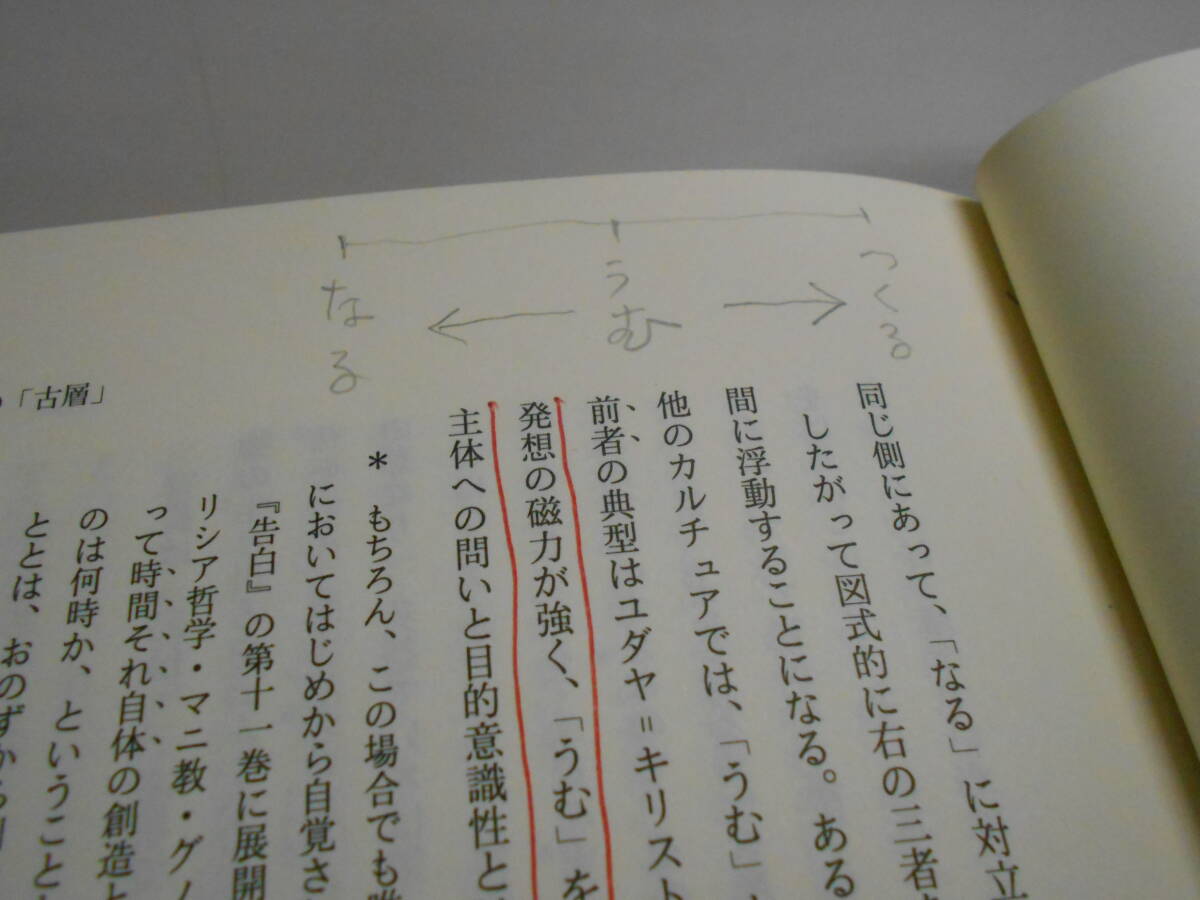 つくる
うむ
なる
同じ側にあって、「なる」に対立
したがって図式的に右の三者
間に浮動することになる。ある
他のカルチュアでは、「うむ」
前者の典型はユダヤ＝キリスト
発想の磁力が強く、「うむ」を
主体への問いと目的意識性と
＊ もちろん、この場合でも
においてはじめから自覚さ
『告白』の第十一巻に展開
リシア哲学・マニ教・グノ
って時間それ自体の創造
のは何時か、ということ
ととは、おのずから
「古層」